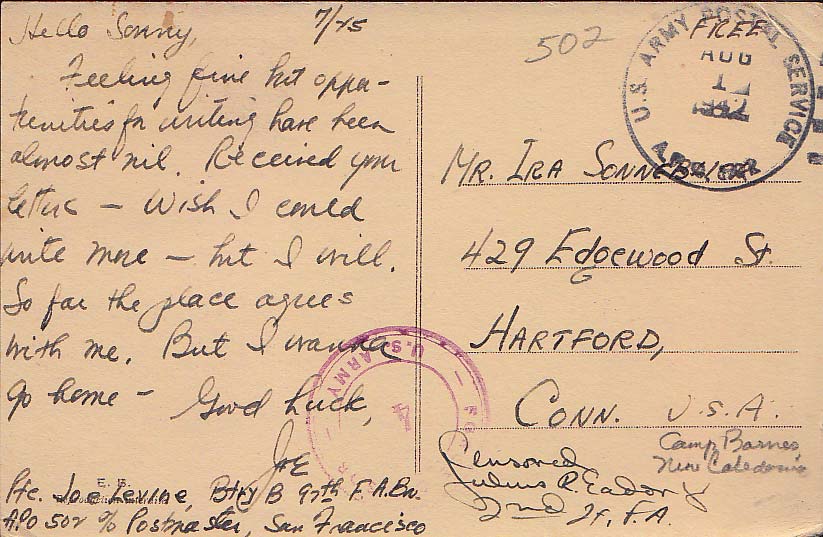 Hello Sonny, 7/25
Feeling fine but oppor-
tunities for writing have been
almost nil. Received your
letters – Wish I could
write more – but I will.
So far the place agrees
with me. But I wanna
go home – Good Luck,
Joe
Pfc. Joe Levine, Btry B 97th F.A. Bn.
APO 502 % Postmaster, San Francisco
E. B.
502
FREE
U.S. ARMY POSTAL SERVICE
AUG
1
1942
A.P.O.
MR. IRA SONNE
429 Edgewood St.
HARTFORD,
CONN. U.S.A.
Camp Barnes
New Caledonia
Censored
Julius R. Eador
2nd Lt. F.A.
U.S. ARMY